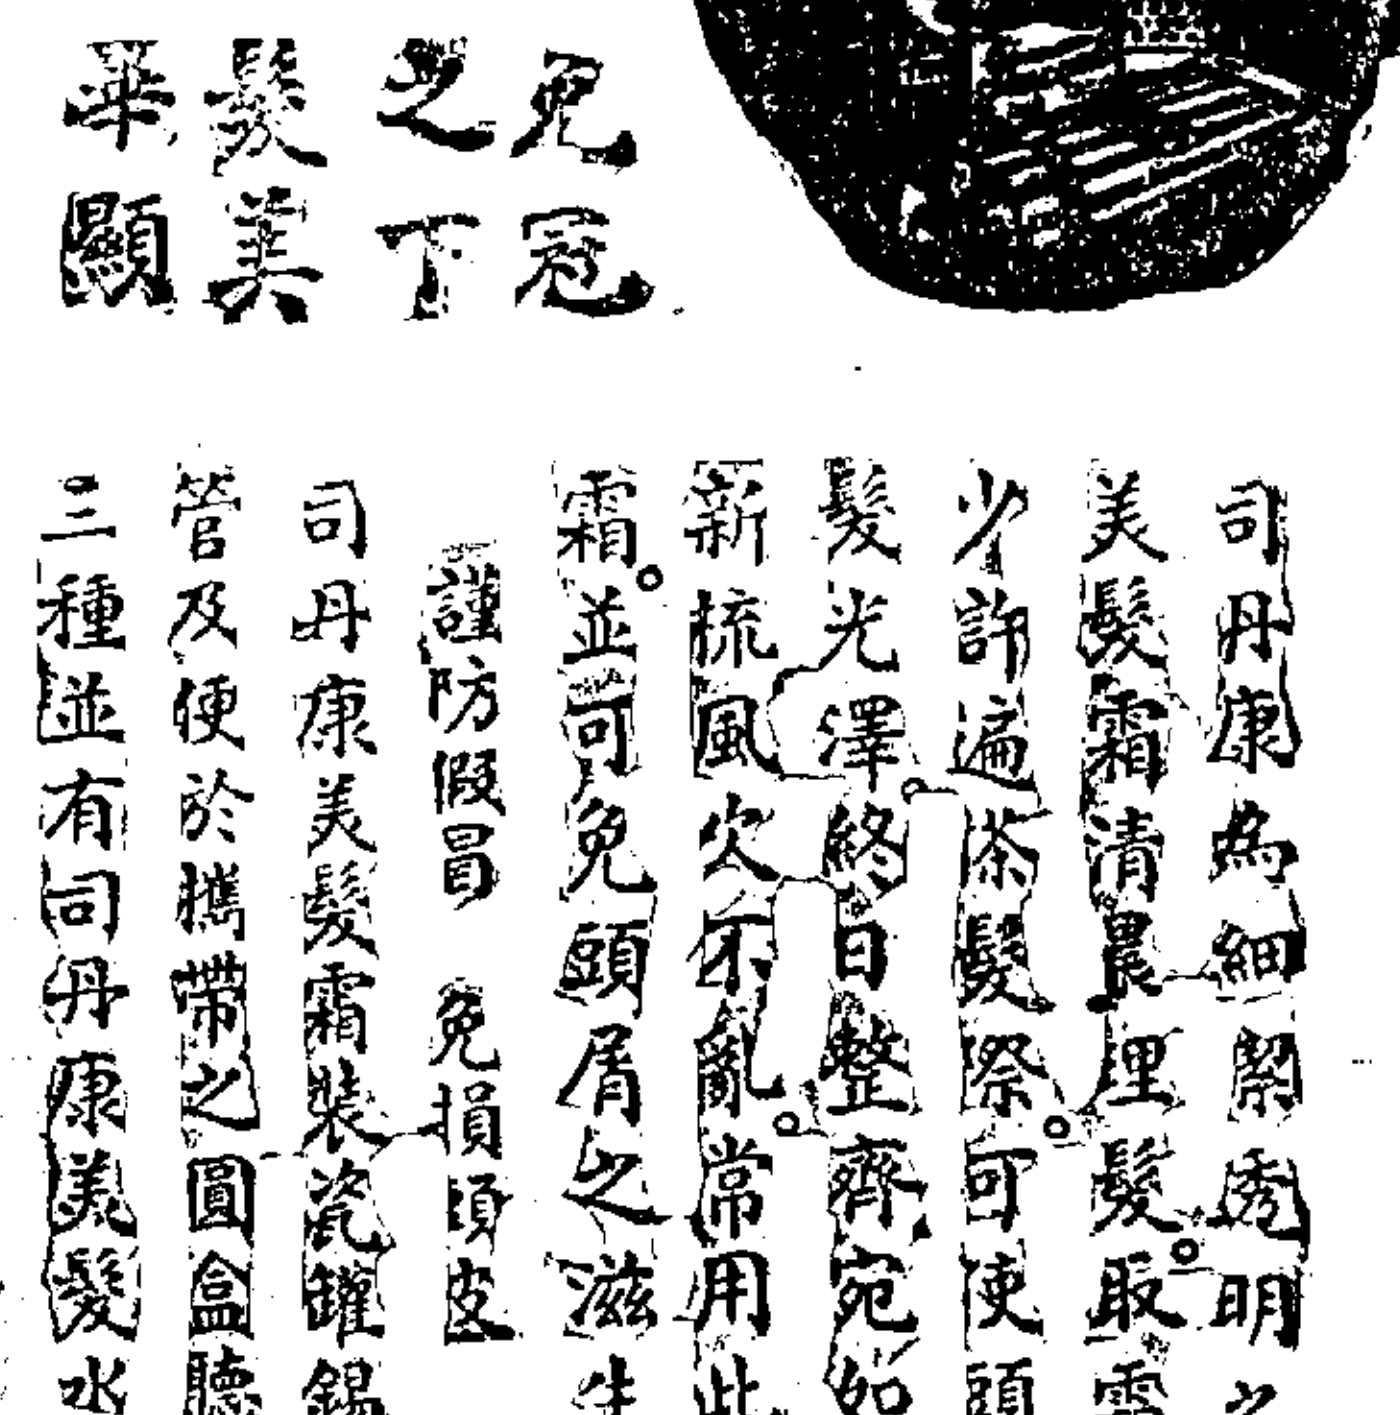 免冠
之下
髮美
畢顯
司丹康為細緊秀明之
美髮霜清晨理髮取霜
少許遍搽髮際。可使頭
髮光澤。終日整齊宛如
新梳風次不亂。常用此
霜。並可免頭屑之滋生
謹防假冒 免損頭皮
司丹康美髮霜裝瓷罐錫
管及便於攜帶之圓盒聽
三種並有司丹康美髮水